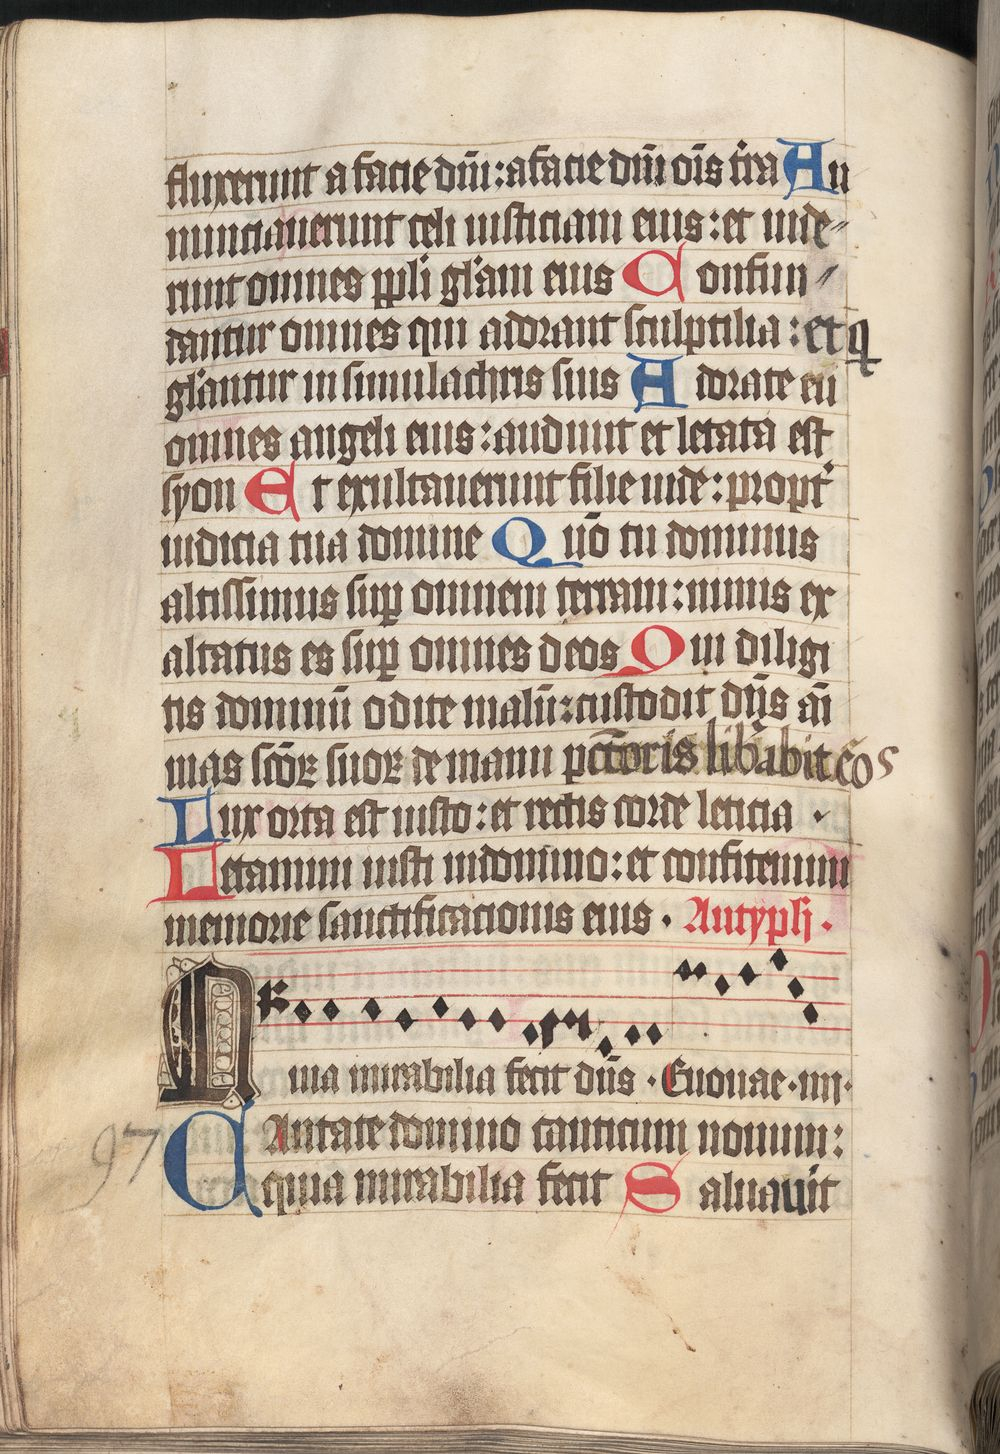 fluxerunt a facie dn̄i : a facie dn̄i oīs t̄ra An
nunciauerunt celi iusticiam eius : et uide〃
runt omnes ppl̄i gl̄am eius Confun〃
dantur omnes qui adorant sculptilia : et q̄
gl̄antur in simulachris suis Adorate eū
omnes angeli eius : audiuit et letata est
syon Et exultauerunt filie iude : propt̄
iudicia tua domine Qm̄ tu dominus
altissimus sup̱ omnem terram : nimis ex
altatus es sup̱ omnes deos Qui diligi
tis dominū odite malū : custodit dn̄s ani
mas scōꝝ suoꝝ de manu pctōris lib̄abit eos
Lux orta est iusto : et rectis corde leticia ·
Letamini iusti in domino : et confitemini
memorie sanctificacionis eius · Antyph̄ ·
Quia mirabilia fecit dn̄s · Euouae · iiii ·
97 Cantate domino canticum nouum :
quia mirabilia fecit Saluauit